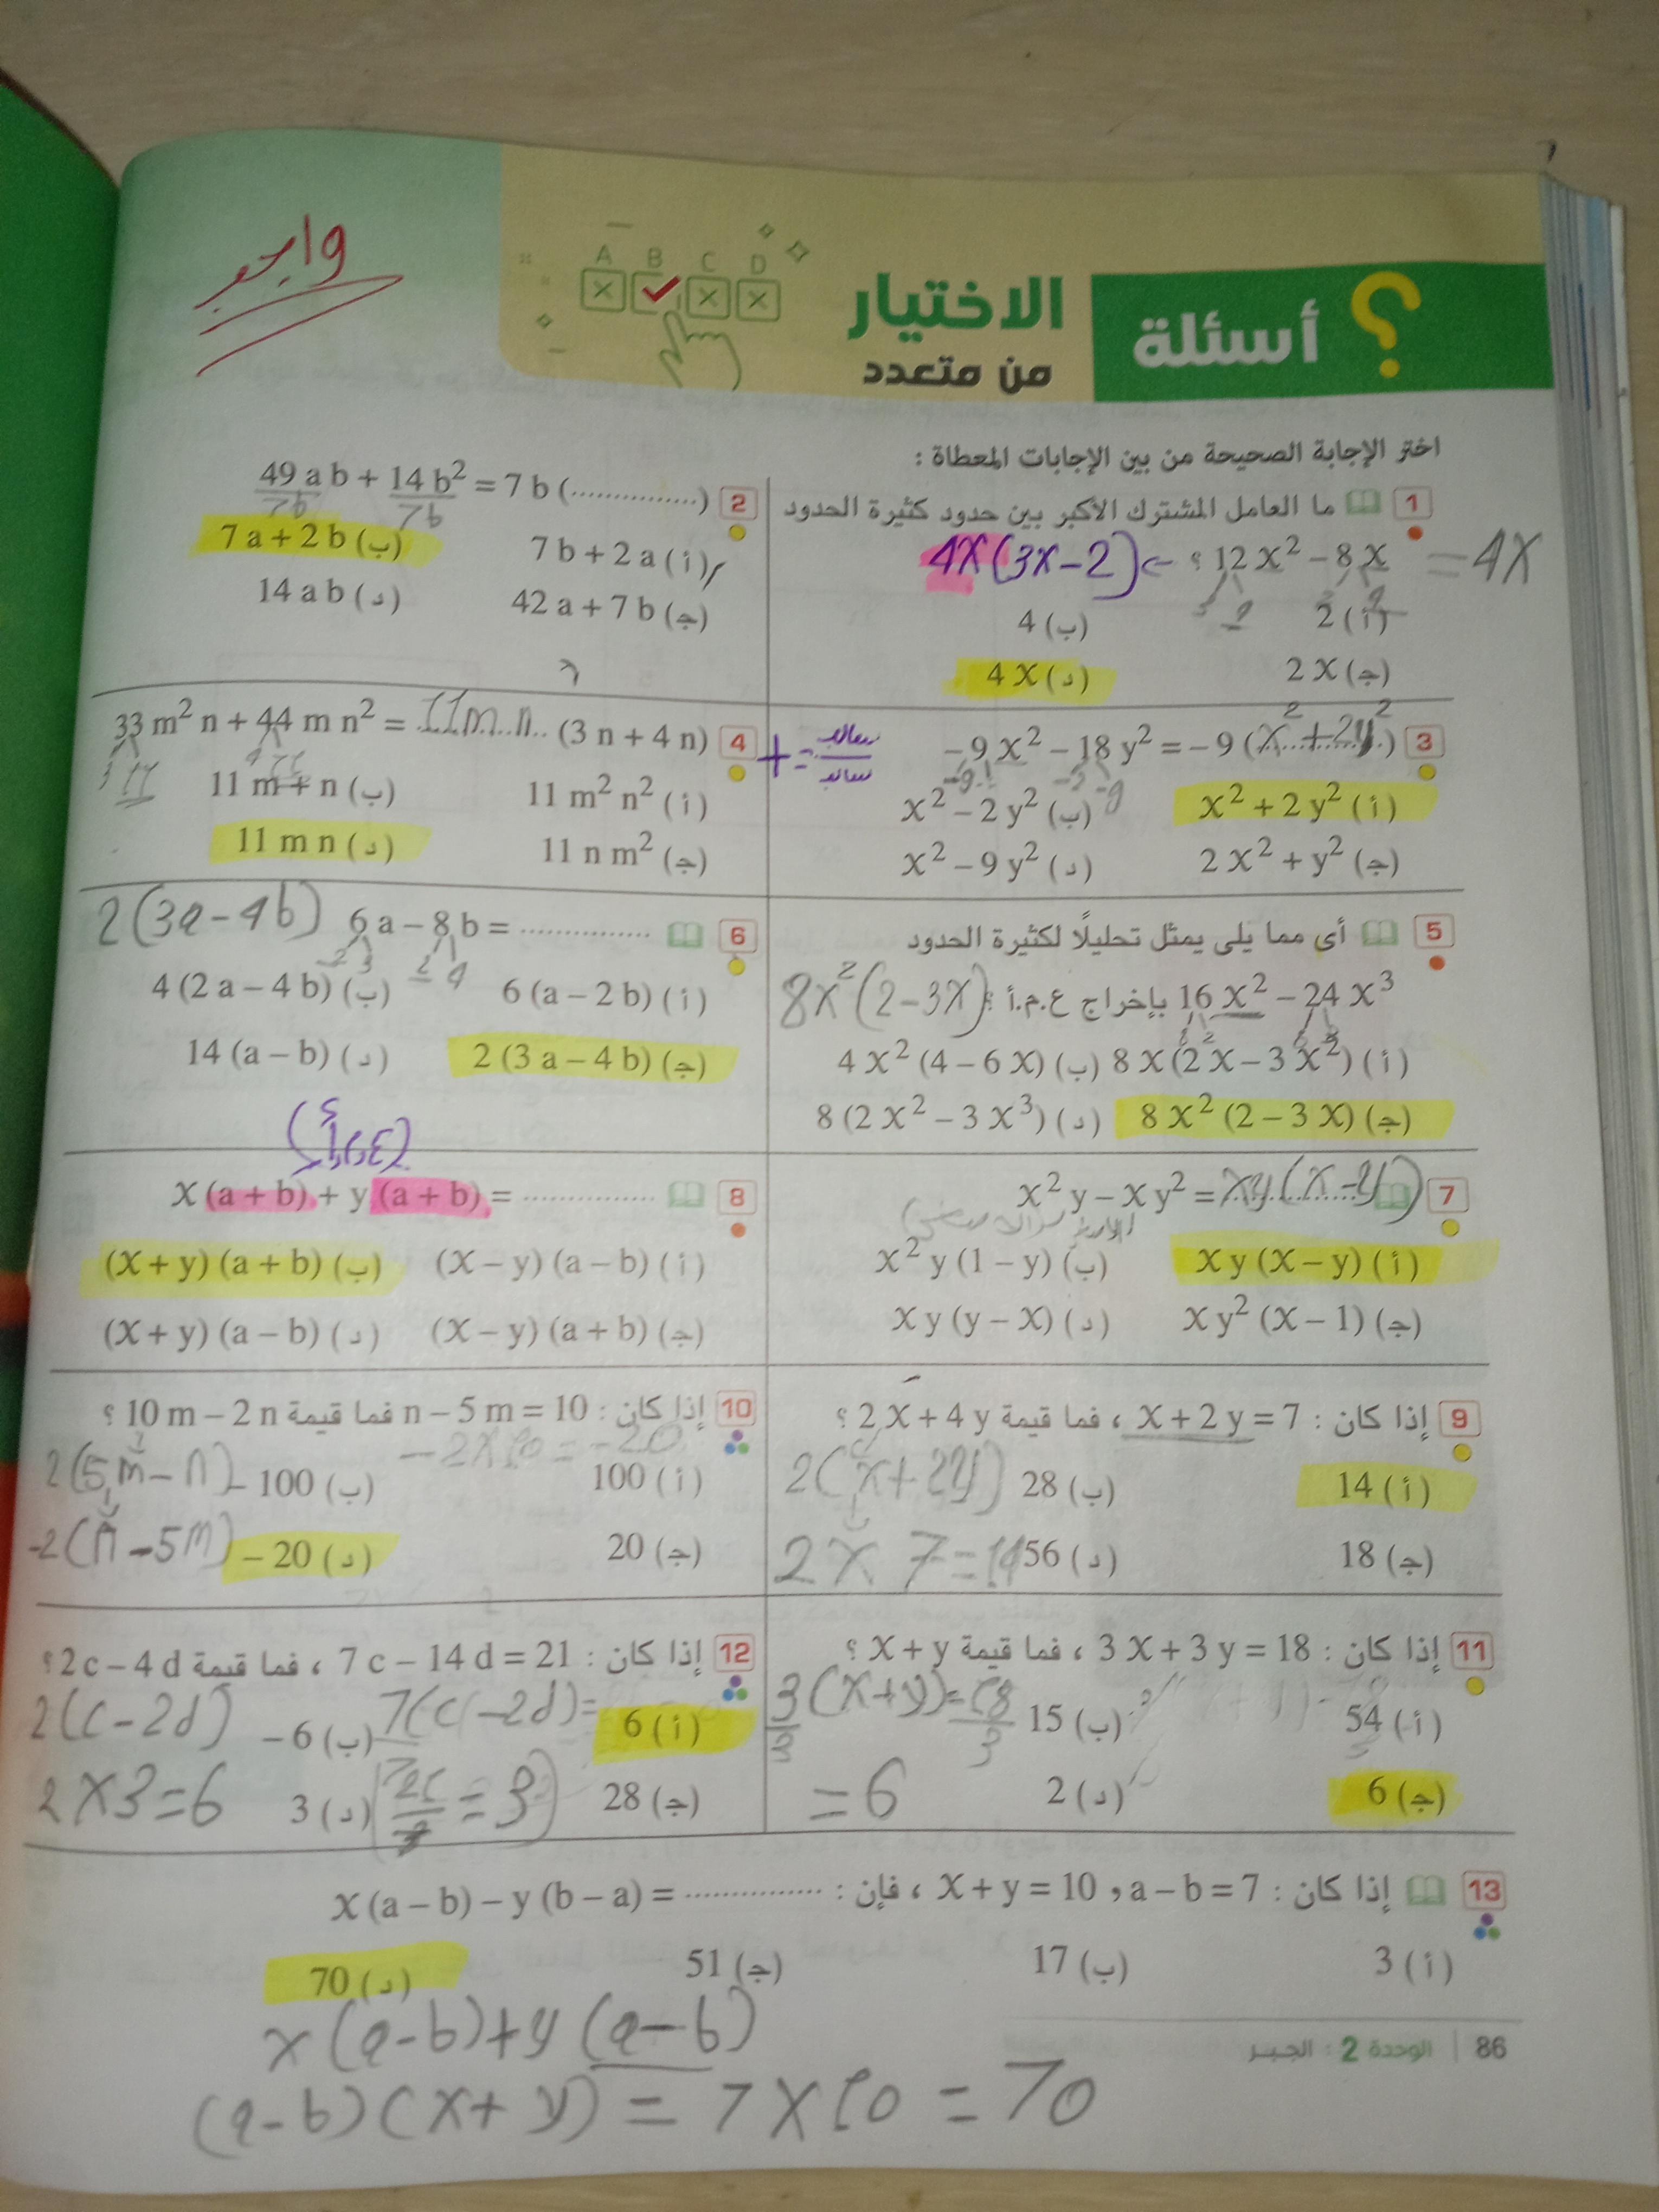 واجب
A B C D
أسئلة
الاختيار
من متعدد
اختر الإجابة الصحيحة من بين الإجابات المعطاة :
1 ما العامل المشترك الأكبر بين حدود كثيرة الحدود
12 x² – 8 x ؟ → 4x(3x–2) = 4x
(أ) 2 (ب) 4
(ج) 2 x (د) 4 x
2 49 a b + 14 b² = 7 b (...............)
7b 7b
(أ) 7 b + 2 a (ب) 7 a + 2 b
(ج) 42 a + 7 b (د) 14 a b
3 – 9 x² – 18 y² = – 9 (x² + 2y²)
سالب / سالب = +
(أ) x² + 2 y² (ب) x² – 2 y²
(ج) 2 x² + y² (د) x² – 9 y²
4 33 m² n + 44 m n² = 11 m n (3 n + 4 n)
11
(أ) 11 m² n² (ب) 11 m + n
(ج) 11 n m² (د) 11 m n
5 أى مما يلى يمثل تحليلًا لكثيرة الحدود
16 x² – 24 x³ بإخراج ع.م.أ ؟ 8x²(2–3x)
(أ) 8 x (2 x – 3 x²) (ب) 4 x² (4 – 6 x)
(ج) 8 x² (2 – 3 x) (د) 8 (2 x² – 3 x³)
6 6 a – 8 b = ............... 2(3a–4b)
(أ) 6 (a – 2 b) (ب) 4 (2 a – 4 b)
(ج) 2 (3 a – 4 b) (د) 14 (a – b)
7 x² y – x y² = xy(x–y)
(أ) x y (x – y) (ب) x² y (1 – y)
(ج) x y² (x – 1) (د) x y (y – x)
8 x (a + b) + y (a + b) = ...............
(أ) (x – y) (a – b) (ب) (x + y) (a + b)
(ج) (x – y) (a + b) (د) (x + y) (a – b)
9 إذا كان : x + 2 y = 7 ، فما قيمة 2 x + 4 y ؟
(أ) 14 (ب) 28 2(x+2y)
(ج) 18 (د) 56 2 x 7 = 14
10 إذا كان : n – 5 m = 10 فما قيمة 10 m – 2 n ؟
–2x10 = –20
(أ) 100 (ب) – 100 2(5m–n)
(ج) 20 (د) – 20 -2(n–5m)
11 إذا كان : 3 x + 3 y = 18 ، فما قيمة x + y ؟
3(x+y) = 18
3 3
(أ) 54 (ب) 15
(ج) 6 (د) 2 = 6
12 إذا كان : 7 c – 14 d = 21 ، فما قيمة 2 c – 4 d ؟
7(c–2d) = 2(c–2d)
(أ) 6 (ب) – 6
(ج) 28 (د) 3 = 3 2x3=6
13 إذا كان : a – b = 7 ، x + y = 10 ، فإن : x (a – b) – y (b – a) = ...............
(أ) 3 (ب) 17 (ج) 51 (د) 70
x(a-b)+y(a–b)
(a-b)(x+y) = 7 x 10 = 70
86 الوحدة 2 : الجبر